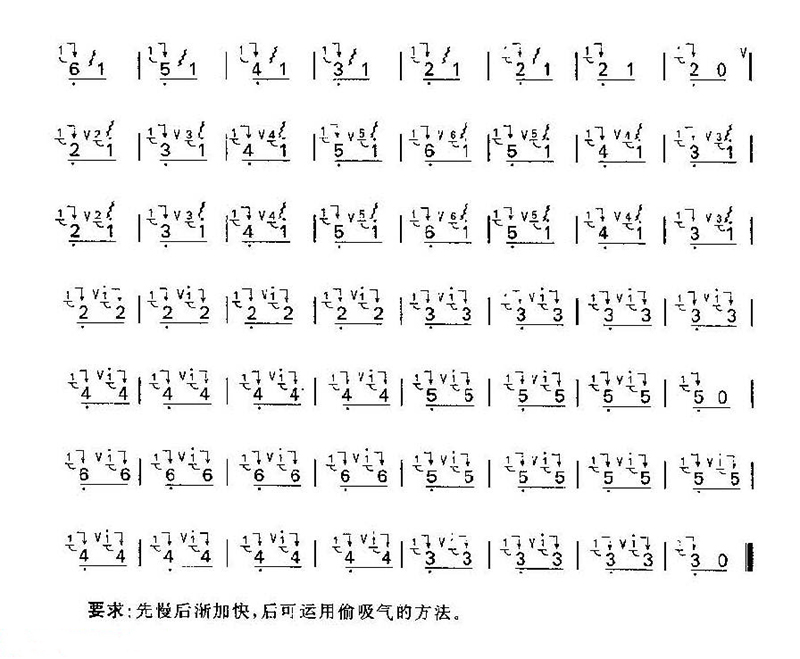 6 1 | 5 1 | 4 1 | 3 1 | 2 1 | 2 1 | 2 1 | 2 0 V |
2 V 1 | 3 V 1 | 4 V 1 | 5 V 1 | 6 V 1 | 5 V 1 | 4 V 1 | 3 V 1 |
2 V 1 | 3 V 1 | 4 V 1 | 5 V 1 | 6 V 1 | 5 V 1 | 4 V 1 | 3 V 1 |
2 V 2 | 2 V 2 | 2 V 2 | 2 V 2 | 3 V 3 | 3 V 3 | 3 V 3 | 3 V 3 |
4 V 4 | 4 V 4 | 4 V 4 | 4 V 4 | 5 V 5 | 5 V 5 | 5 V 5 | 5 0 |
6 V 6 | 6 V 6 | 6 V 6 | 6 V 6 | 5 V 5 | 5 V 5 | 5 V 5 | 5 V 5 |
4 V 4 | 4 V 4 | 4 V 4 | 4 V 4 | 3 V 3 | 3 V 3 | 3 V 3 | 3 0 ‖
要求:先慢后渐加快,后可运用偷吸气的方法。